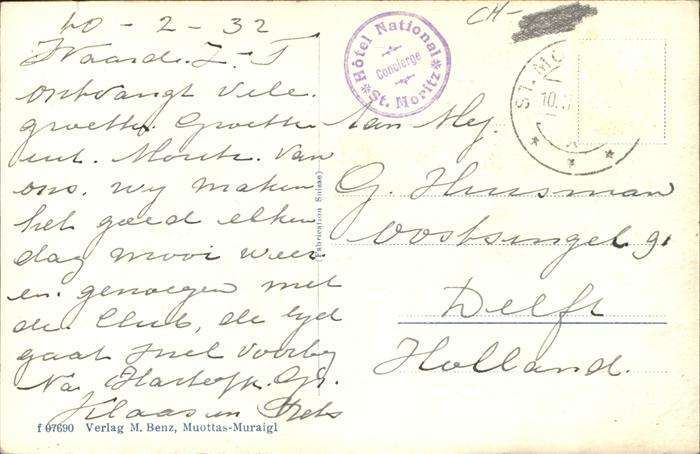 10 - 2 - 32
Waarde Z. T
ontvangt vele
groeten. Groeten
uit. Moritz. Van
ons. Wij maken
het goed elken
dag mooi weer
en. genoegen met
de. Club, de tijd
gaat snel voorbij
Na Hartelijk. Gr.
Klaas en
f 07690 Verlag M. Benz, Muottas-Muraigl
Fabrication Suisse
Hôtel National
Concierge
St. Moritz
CH-
ST. MO
10.
Aan Mej.
G. Huusman
Oostsingel 91
Delft
Holland.